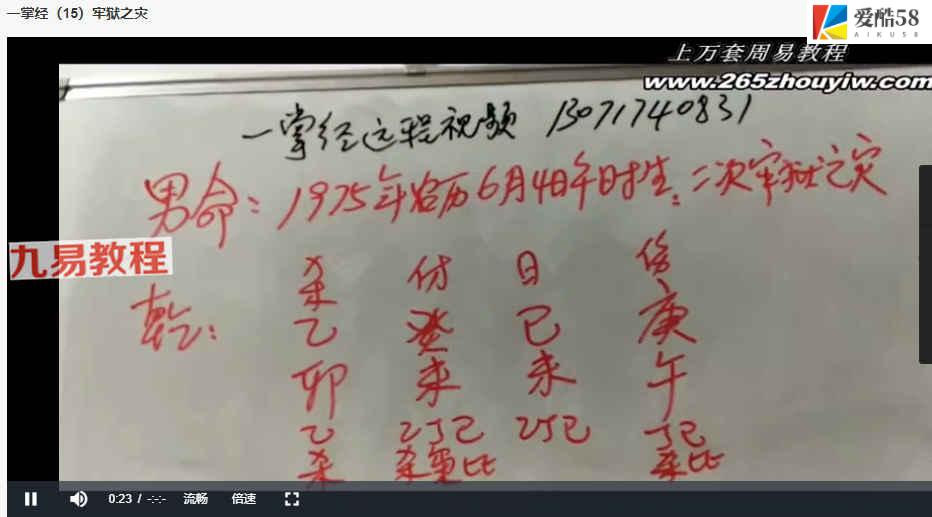 一掌经（15）牢狱之灾
爱酷58
AIKU58
上万套周易教程
www.265zhouyiw.com
一掌经远程视频 13071740831
男命：1975年农历6月4日午时生：二次牢狱之灾
九易教程
杀 付 日 伤
乾：乙 癸 己 庚
卯 未 未 午
乙 乙丁己 乙丁己 丁己
杀 杀枭比 枭比
0:23 / -:-:- 流畅 倍速